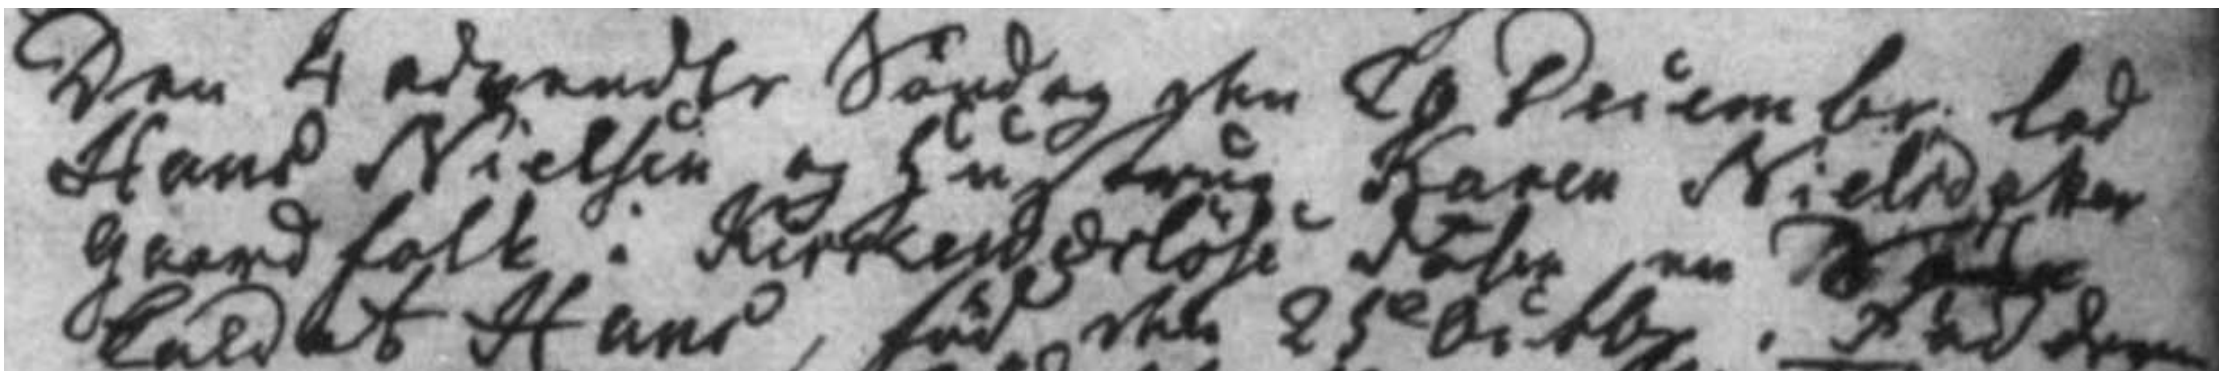 Den 4 advendts Söndag den 20 Decembr. lod
Hans Nielsen og Hustrue Karen Nielsdatter
gaardfolk i Kirkeværlöse döbe en
kaldet Hans, föd den 25 Octbr. Fadderne